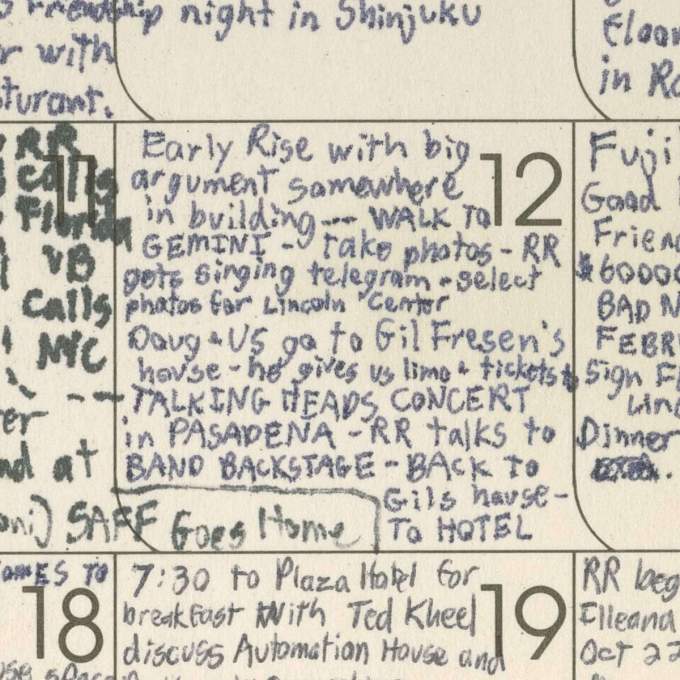 Friendship night in Shinjuku
r with
sturant.
in Ro
11
RR
calls
Florida
VB
calls
NYC
er
nd at
oni) SAFF Goes Home
12
Early Rise with big
argument somewhere
in building --- WALK TO
GEMINI - take photos - RR
gets singing telegram - select
photos for Lincoln Center
Doug + US go to Gil Fresen's
house - he gives us limo + tickets to
TALKING HEADS CONCERT
in PASADENA - RR talks to
BAND BACKSTAGE - BACK TO
Gils house -
TO HOTEL
Fuji
Good
Frien
$60000
BAD N
FEBR
Sign F
Linc
Dinner
18
omes TO
use space
19
7:30 to Plaza Hotel for
breakfast With Ted Kheel
discuss Automation House and
RR beg
Elleana
Oct 22